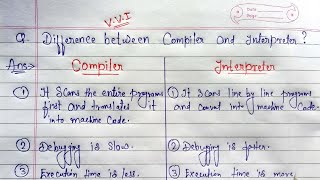 V.V.I
Date
Page
Q. Difference between Compiler and Interpreter ?
Ans:→ Compiler
Interpreter
① It Scans the entire programs
first and translates it
into machine Code.
① It Scans line by line programs
and convert into machine Code.
② Debugging is Slow.
② Debugging is faster.
③ Execution time is less.
③ Execution time is more.